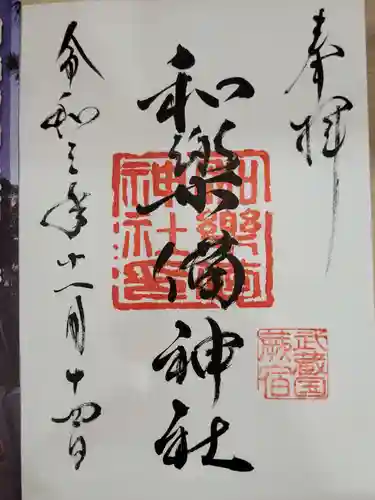 奉拝
武蔵国
蕨宿
和樂備神社
和樂備
神社之印
令和三年十一月十四日